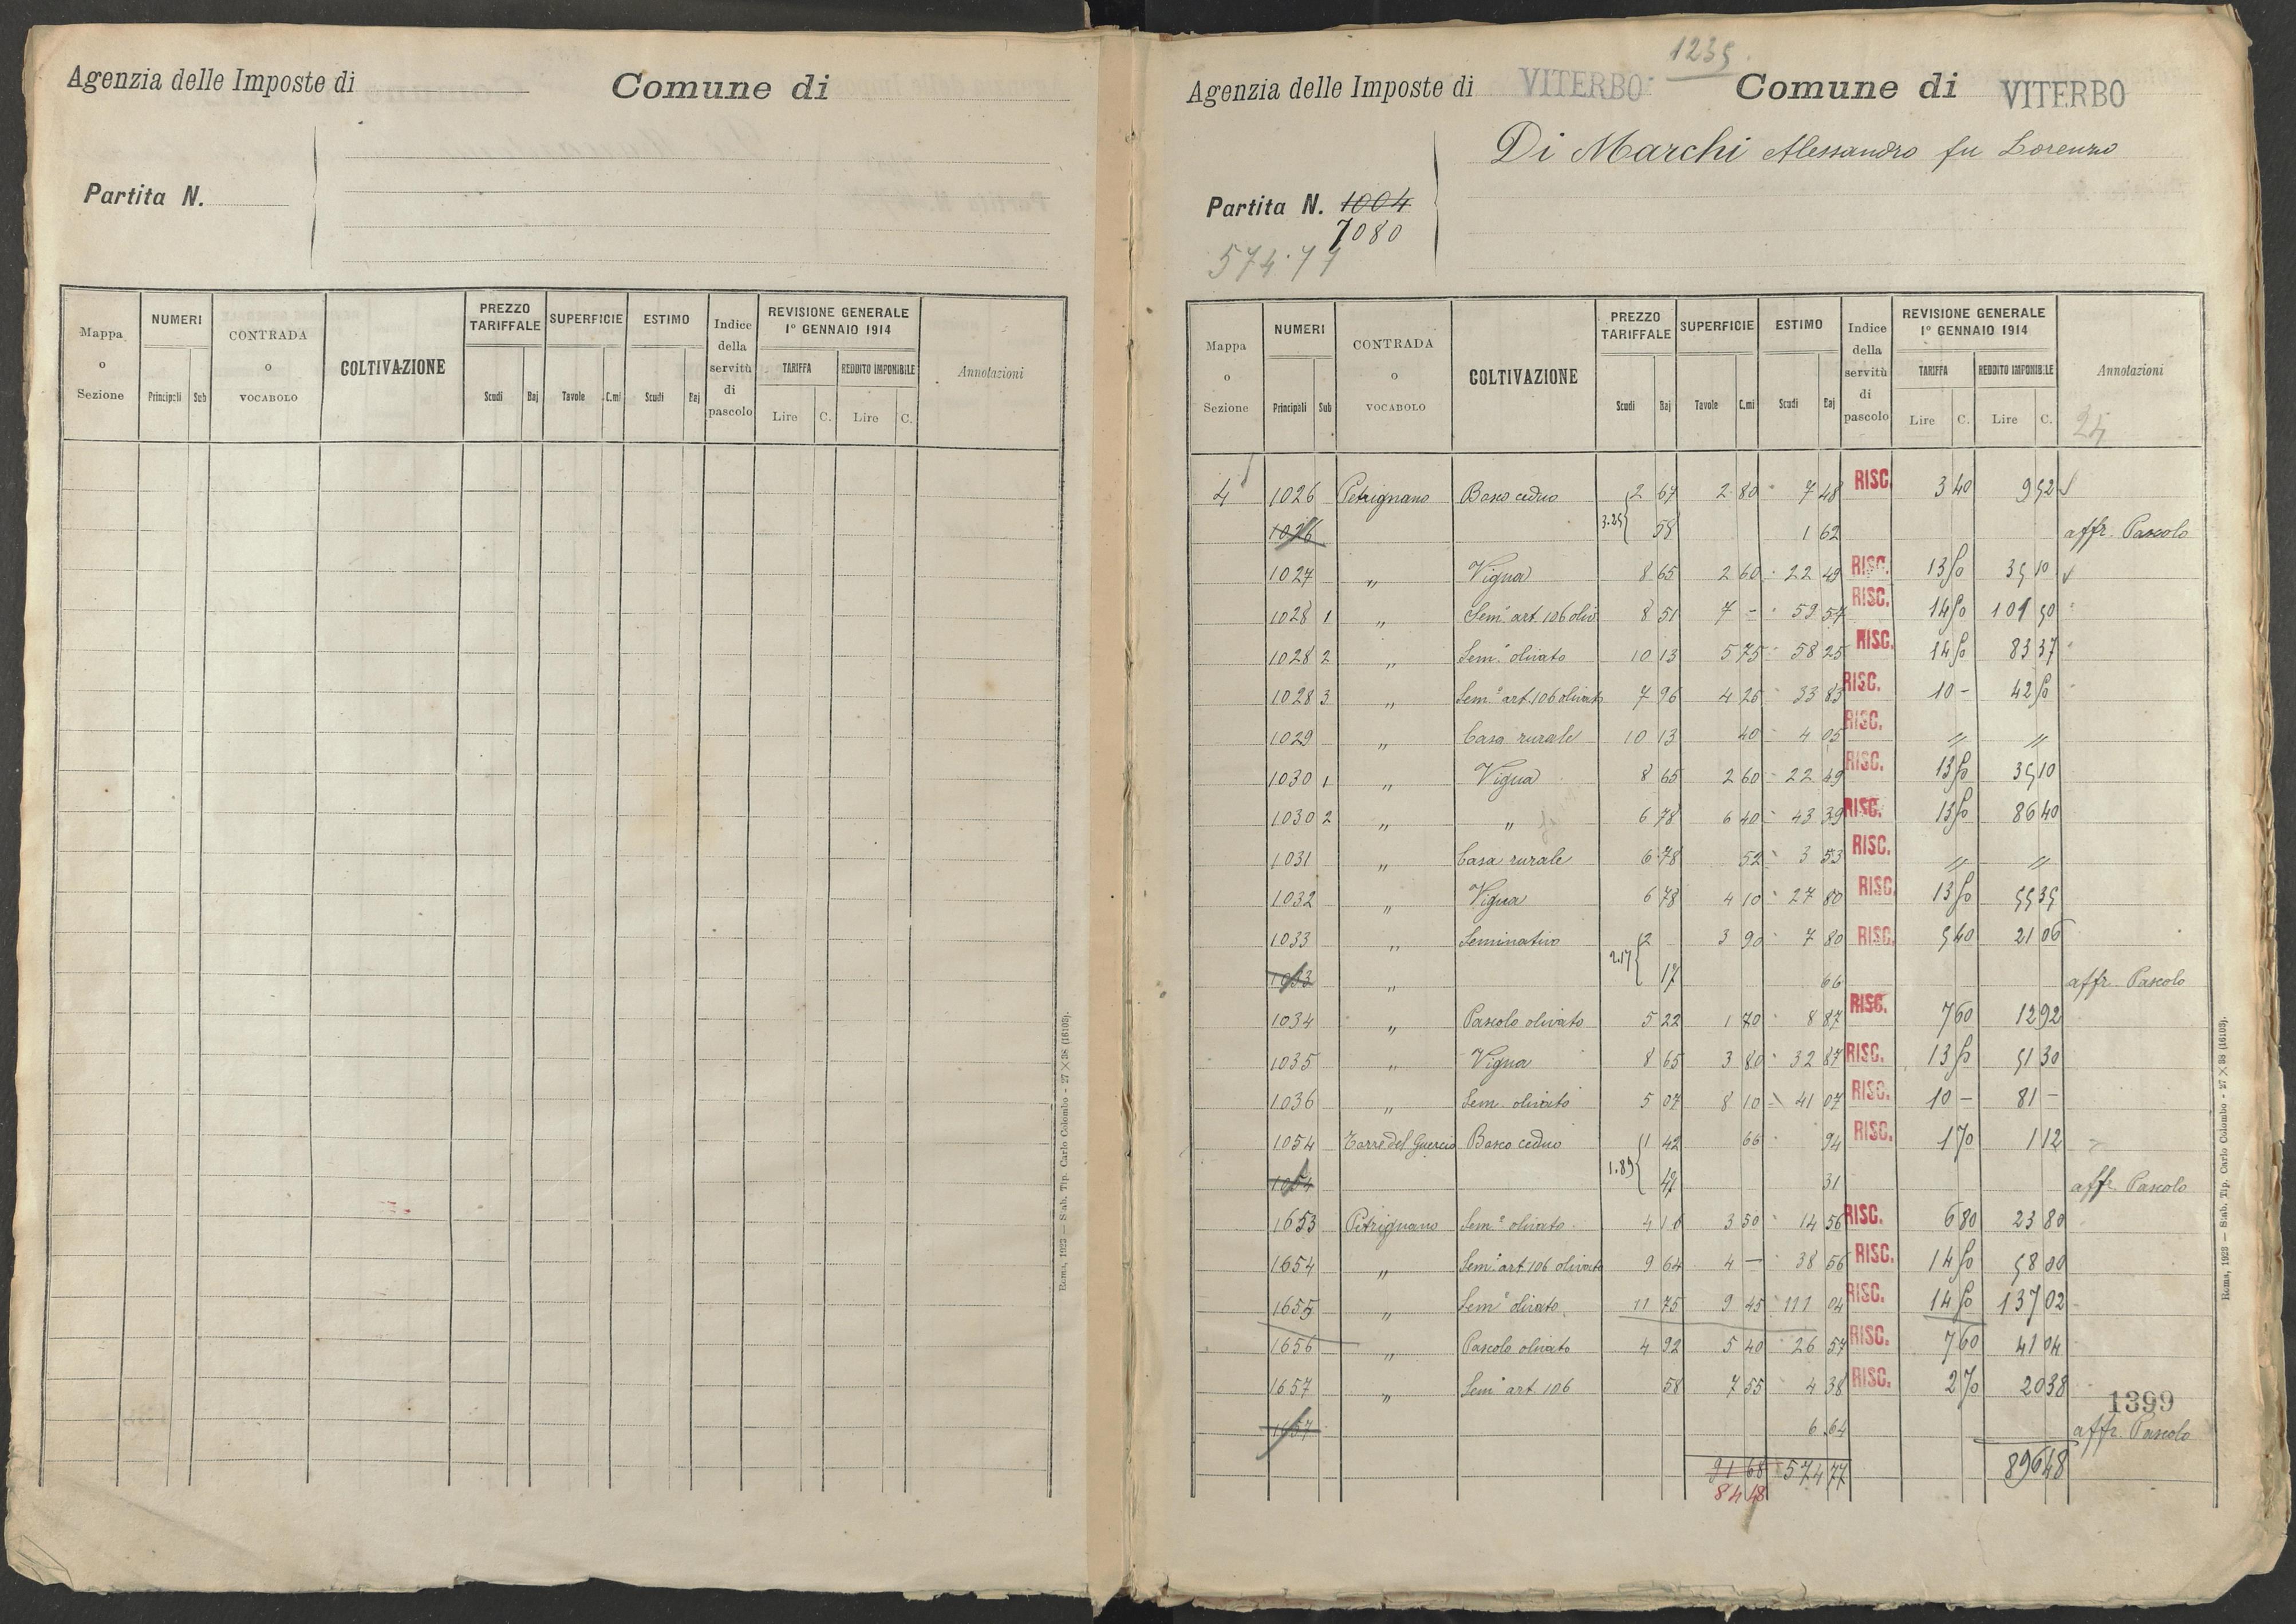 Agenzia delle Imposte di
Comune di
Partita N.
Mappa o Sezione
NUMERI
Principali Sub
CONTRADA o VOCABOLO
COLTIVAZIONE
PREZZO TARIFFALE
Scudi Baj
SUPERFICIE
Tavole C.mi
ESTIMO
Scudi Baj
Indice della servitù di pascolo
REVISIONE GENERALE 1º GENNAIO 1914
TARIFFA
Lire C.
REDDITO IMPONIBILE
Lire C.
Annotazioni
Roma, 1923 — Stab. Tip. Carlo Colombo - 27 × 38 (16103).
1235
Agenzia delle Imposte di VITERBO Comune di VITERBO
Di Marchi Alessandro fu Lorenzo
Partita N. 1004
7080
574.77
Mappa o Sezione
NUMERI
Principali Sub
CONTRADA o VOCABOLO
COLTIVAZIONE
PREZZO TARIFFALE
Scudi Baj
SUPERFICIE
Tavole C.mi
ESTIMO
Scudi Baj
Indice della servitù di pascolo
REVISIONE GENERALE 1º GENNAIO 1914
TARIFFA
Lire C.
REDDITO IMPONIBILE
Lire C.
Annotazioni
4 1026 Petrignano Bosco ceduo 2 67 2 80 7 48 RISC. 3 40 9 52
1026 3.25 58 1 62 affr. Pascolo
1027 " Vigna 8 65 2 60 22 49 RISC. 13 50 35 10
1028 1 " Sem.º art. 106 oliv. 8 51 7 - 59 57 RISC. 14 50 101 50
1028 2 " Sem.º olivato 10 13 5 75 58 25 RISC. 14 50 83 37
1028 3 " Sem.º art. 106 olivato 7 96 4 25 33 83 RISC. 10 - 42 50
1029 " Casa rurale 10 13 40 4 05 RISC. " "
1030 1 " Vigna 8 65 2 60 22 49 RISC. 13 50 35 10
1030 2 " " 6 78 6 40 43 39 RISC. 13 50 86 40
1031 " Casa rurale 6 78 52 3 53 RISC. " "
1032 " Vigna 6 78 4 10 27 80 RISC. 13 50 55 35
1033 " Seminativo 2 3 90 7 80 RISC. 5 40 21 06
1033 " 2.17 17 66 affr. Pascolo
1034 " Pascolo olivato 5 22 1 70 8 87 RISC. 7 60 12 92
1035 " Vigna 8 65 3 80 32 87 RISC. 13 50 51 30
1036 " Sem. olivato 5 07 8 10 41 07 RISC. 10 - 81 -
1054 Torre del Guercio Bosco ceduo 1 42 66 94 RISC. 1 70 1 12
1054 1.89 47 31 affr. Pascolo
1653 Petrignano Sem.º olivato 4 16 3 50 14 56 RISC. 6 80 23 80
1654 " Sem.º art. 106 olivato 9 64 4 - 38 56 RISC. 14 50 58 00
1655 " Sem.º olivato 11 75 9 45 111 04 RISC. 14 50 137 02
1656 " Pascolo olivato 4 92 5 40 26 57 RISC. 7 60 41 04
1657 " Sem.º art. 106 58 7 55 4 38 RISC. 2 70 20 38
1399
1657 6 64 affr. Pascolo
91 68 574 77 896 48
84 48
Roma, 1923 — Stab. Tip. Carlo Colombo - 27 × 38 (16103).